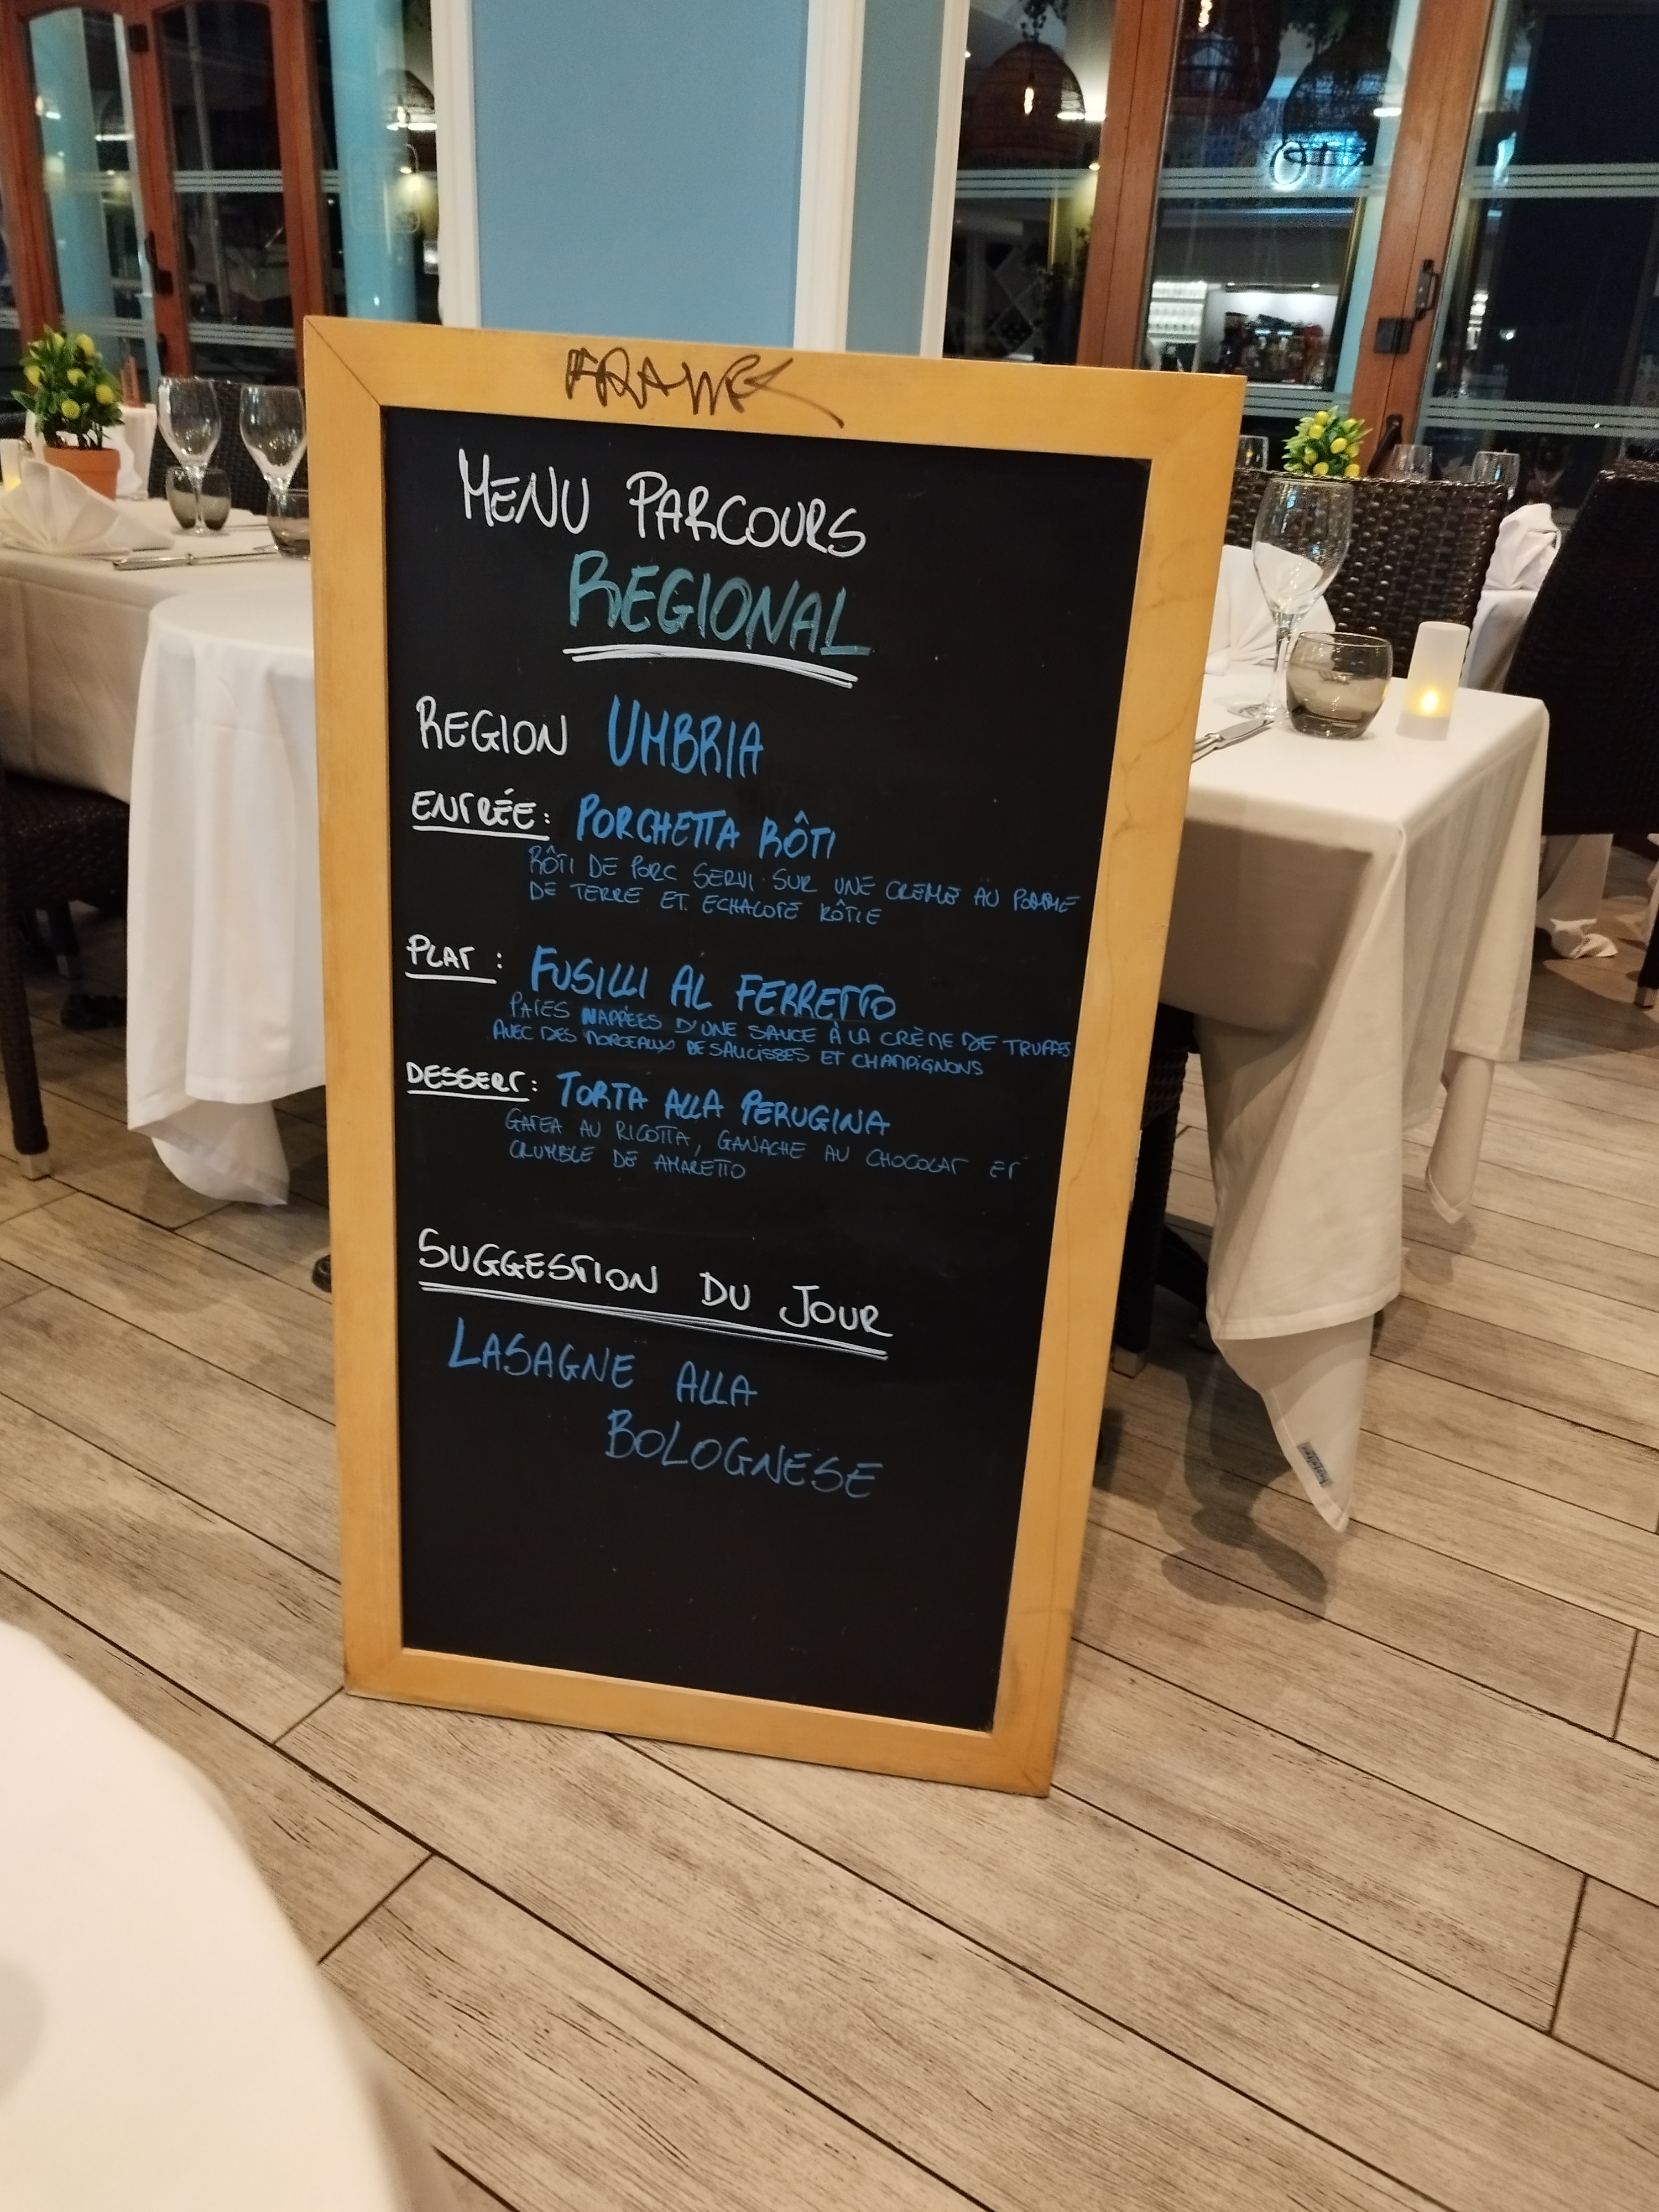 MENU PARCOURS
REGIONAL
REGION UMBRIA
ENTRÉE: PORCHETTA RÔTI
RÔTI DE PORC SERVI SUR UNE CREME AU POMME
DE TERRE ET ECHALOTE RÔTIE
PLAT : FUSILLI AL FERRETTO
PATES NAPPÉES D'UNE SAUCE À LA CRÈME DE TRUFFES
AVEC DES MORCEAUX DE SAUCISSES ET CHAMPIGNONS
DESSERT: TORTA ALLA PERUGINA
GATEA AU RICOTTA, GANACHE AU CHOCOLAT ET
CRUMBLE DE AMARETTO
SUGGESTION DU JOUR
LASAGNE ALLA
BOLOGNESE